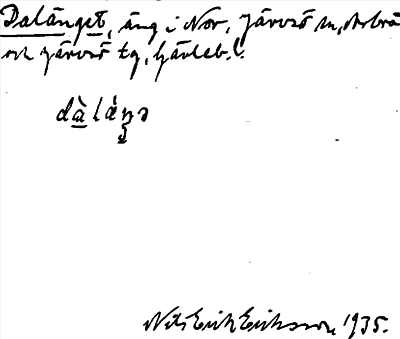 Dalänget, äng i Nor, Järvsö sn, Arbrå
och Järvsö tg, Gävleb. l.
dàláŋə
Nils Erik Eriksson 1935.